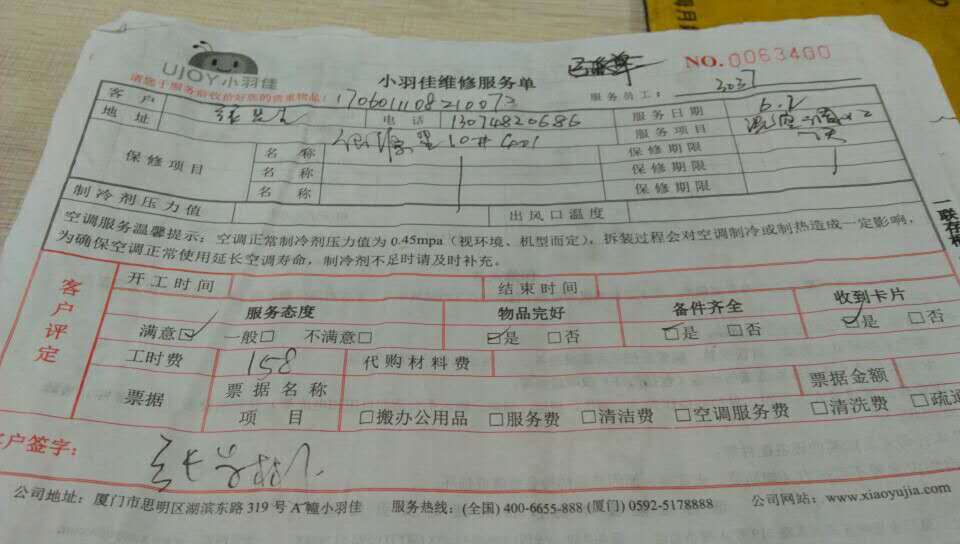 UJOY小羽佳
小羽佳维修服务单
NO.0063400
请您于服务验收恰好您的贵重物品!
170601108210073
服务员工: 3037
客户 张先生 电话 13074820686 服务日期 6.2
地址 10# 服务项目
保修项目 名称 保修期限
名称 保修期限
名称 保修期限
制冷剂压力值 出风口温度
空调服务温馨提示:空调正常制冷剂压力值为0.45mpa(视环境、机型而定),拆装过程会对空调制冷或制热造成一定影响,
为确保空调正常使用延长空调寿命,制冷剂不足时请及时补充。
一联存根
客户评定
开工时间 结束时间
服务态度 物品完好 备件齐全 收到卡片
满意☑ 一般□ 不满意□ ☑是 □否 ☑是 □否 ☑是 □否
工时费 158 代购材料费
票据 票据名称 票据金额
项目 □搬办公用品 □服务费 □清洁费 □空调服务费 □清洗费 □疏通
客户签字:
公司地址:厦门市思明区湖滨东路319号A幢小羽佳 服务热线:(全国)400-6655-888(厦门)0592-5178888 公司网站:www.xiaoyujia.com